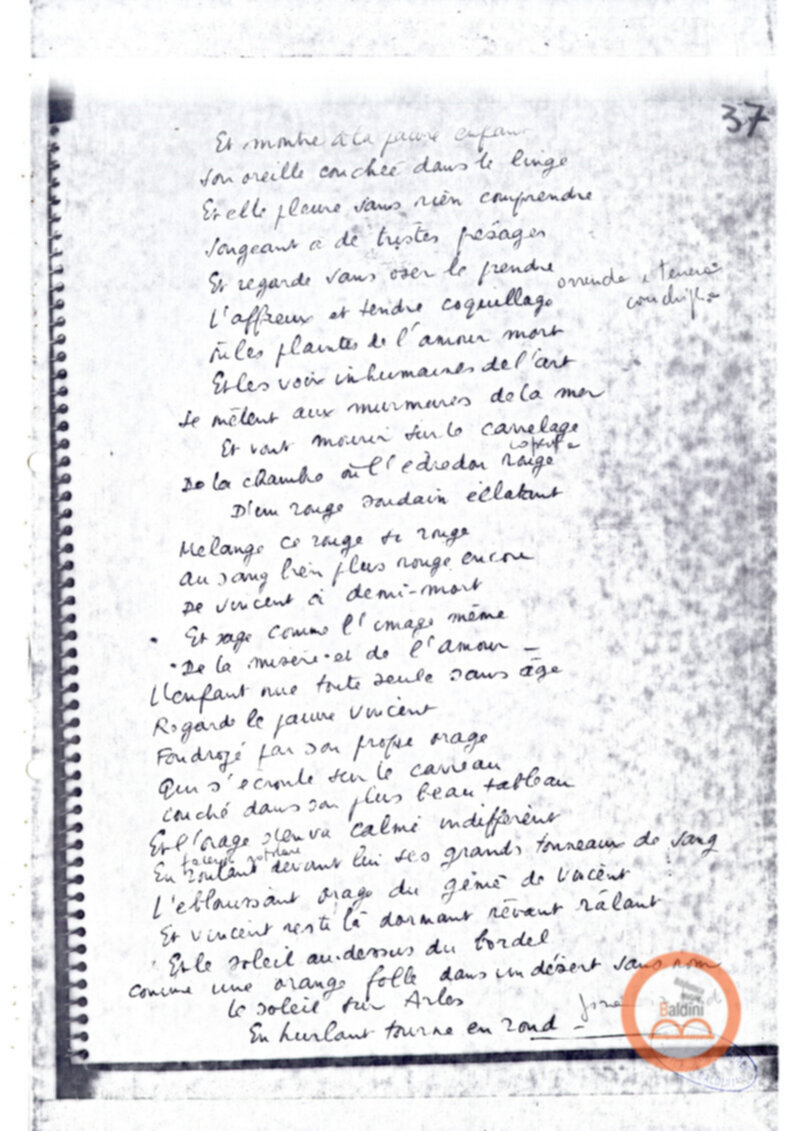 37
Et montre à la pauvre enfant
Son oreille couchée dans le linge
Et elle pleure sans rien comprendre
Songeant à de tristes présages
Et regarde sans oser le prendre
L'affreux et tendre coquillage orrenda e tenera
conchiglia
Où les plaintes de l'amour mort
Et les voix inhumaines de l'art
Se mêlent aux murmures de la mer
Et vont mourir sur le carrelage
De la chambre où l'édredon rouge
D'un rouge soudain éclatant
Mélange ce rouge si rouge
Au sang bien plus rouge encore
De Vincent à demi-mort
Et sage comme l'image même
De la misère et de l'amour –
L'enfant nue toute seule sans âge
Regarde le pauvre Vincent
Foudroyé par son propre orage
Qui s'écroule sur le carreau
Couché dans son plus beau tableau
Et l'orage s'en va calmé indifférent
En roulant devant lui ses grands tonneaux de sang
L'éblouissant orage du génie de Vincent
Et Vincent reste là dormant rêvant râlant
Et le soleil au-dessus du bordel
Comme une orange folle dans un désert sans nom
Le soleil sur Arles
En hurlant tourne en rond –
Baldini